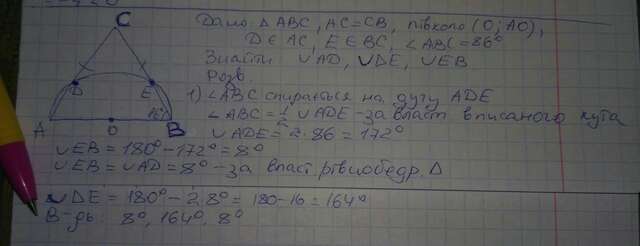 Дано: △ABC, AC=CB, півколо (O; AO),
D∈AC, E∈BC, ∠ABC=86°
Знайти ∪AD, ∪DE, ∪EB
Розв.
C
D
E
86°
A
O
B
1) ∠ABC спирається на дугу ADE
∠ABC=1/2 ∪ADE - за власт вписаного кута
∪ADE=2·86=172°
∪EB=180°-172°=8°
∪EB=∪AD=8° - за власт. рівнобедр. △
∪DE=180°-2·8°=180-16=164°
В-дь: 8°, 164°, 8°